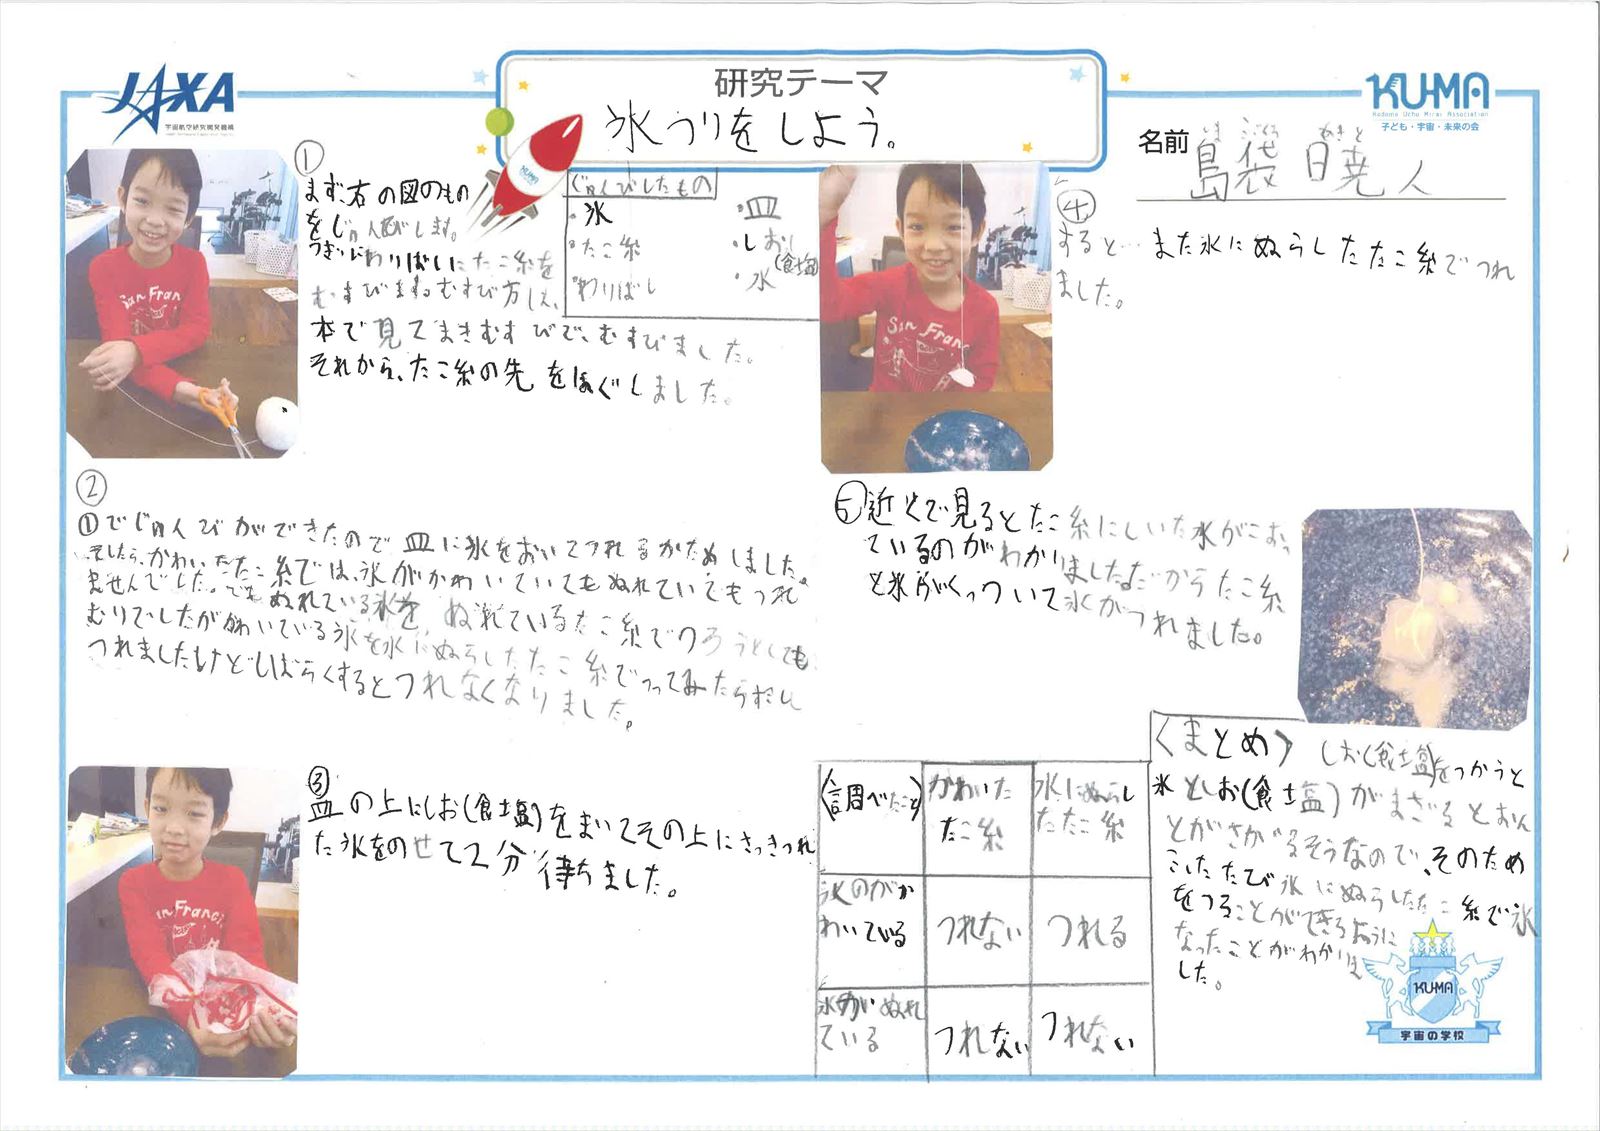 JAXA
宇宙航空研究開発機構
研究テーマ
氷つりをしよう。
KU-MA
Kodomo Uchu Mirai Association
子ども・宇宙・未来の会
名前
しま ぶくろ あきと
島袋 日暁人
①
まず、右の図のもの
をじゅんびします。
つぎにわりばしにたこ糸を
むすびますむすび方は、
本で見てまきむすびで、むすびました。
それから、たこ糸の先をほぐしました。
じゅんびしたもの
・氷
・たこ糸
・わりばし
・皿
・しお
(食塩)
・水
②
①でじゅんびができたので皿に氷をおいてつれるかためしました。
そしたら、かわいたたこ糸では、氷がかわいていてもぬれていてもつれ
ませんでした。でもぬれている氷を ぬれているたこ糸でつろうとしても
むりでしたがかわいている氷を水にぬらしたたこ糸でつってみたら少し
つれましたけどしばらくするとつれなくなりました。
③
皿の上にしお(食塩)をまいてその上にさっきつれ
た氷をのせて2分待ちました。
④
すると…また水にぬらしたたこ糸でつれ
ました。
⑤近くで見るとたこ糸にしいた水がこおっ
ているのがわかりましただからたこ糸
と氷がくっついて氷がつれました。
(調べたこと)
かわいた
たこ糸
水にぬらし
たたこ糸
氷のがか
わいている
つれない
つれる
氷がぬれ
ている
つれない
つれない
〈まとめ〉 しお(食塩)をつかうと
氷としお(食塩)がまざるとおん
どがさがるそうなので、そのため
こいたたび水にぬらしたたこ糸で氷
をつることができるように
なったことがわかりま
した。
KU-MA
宇宙の学校